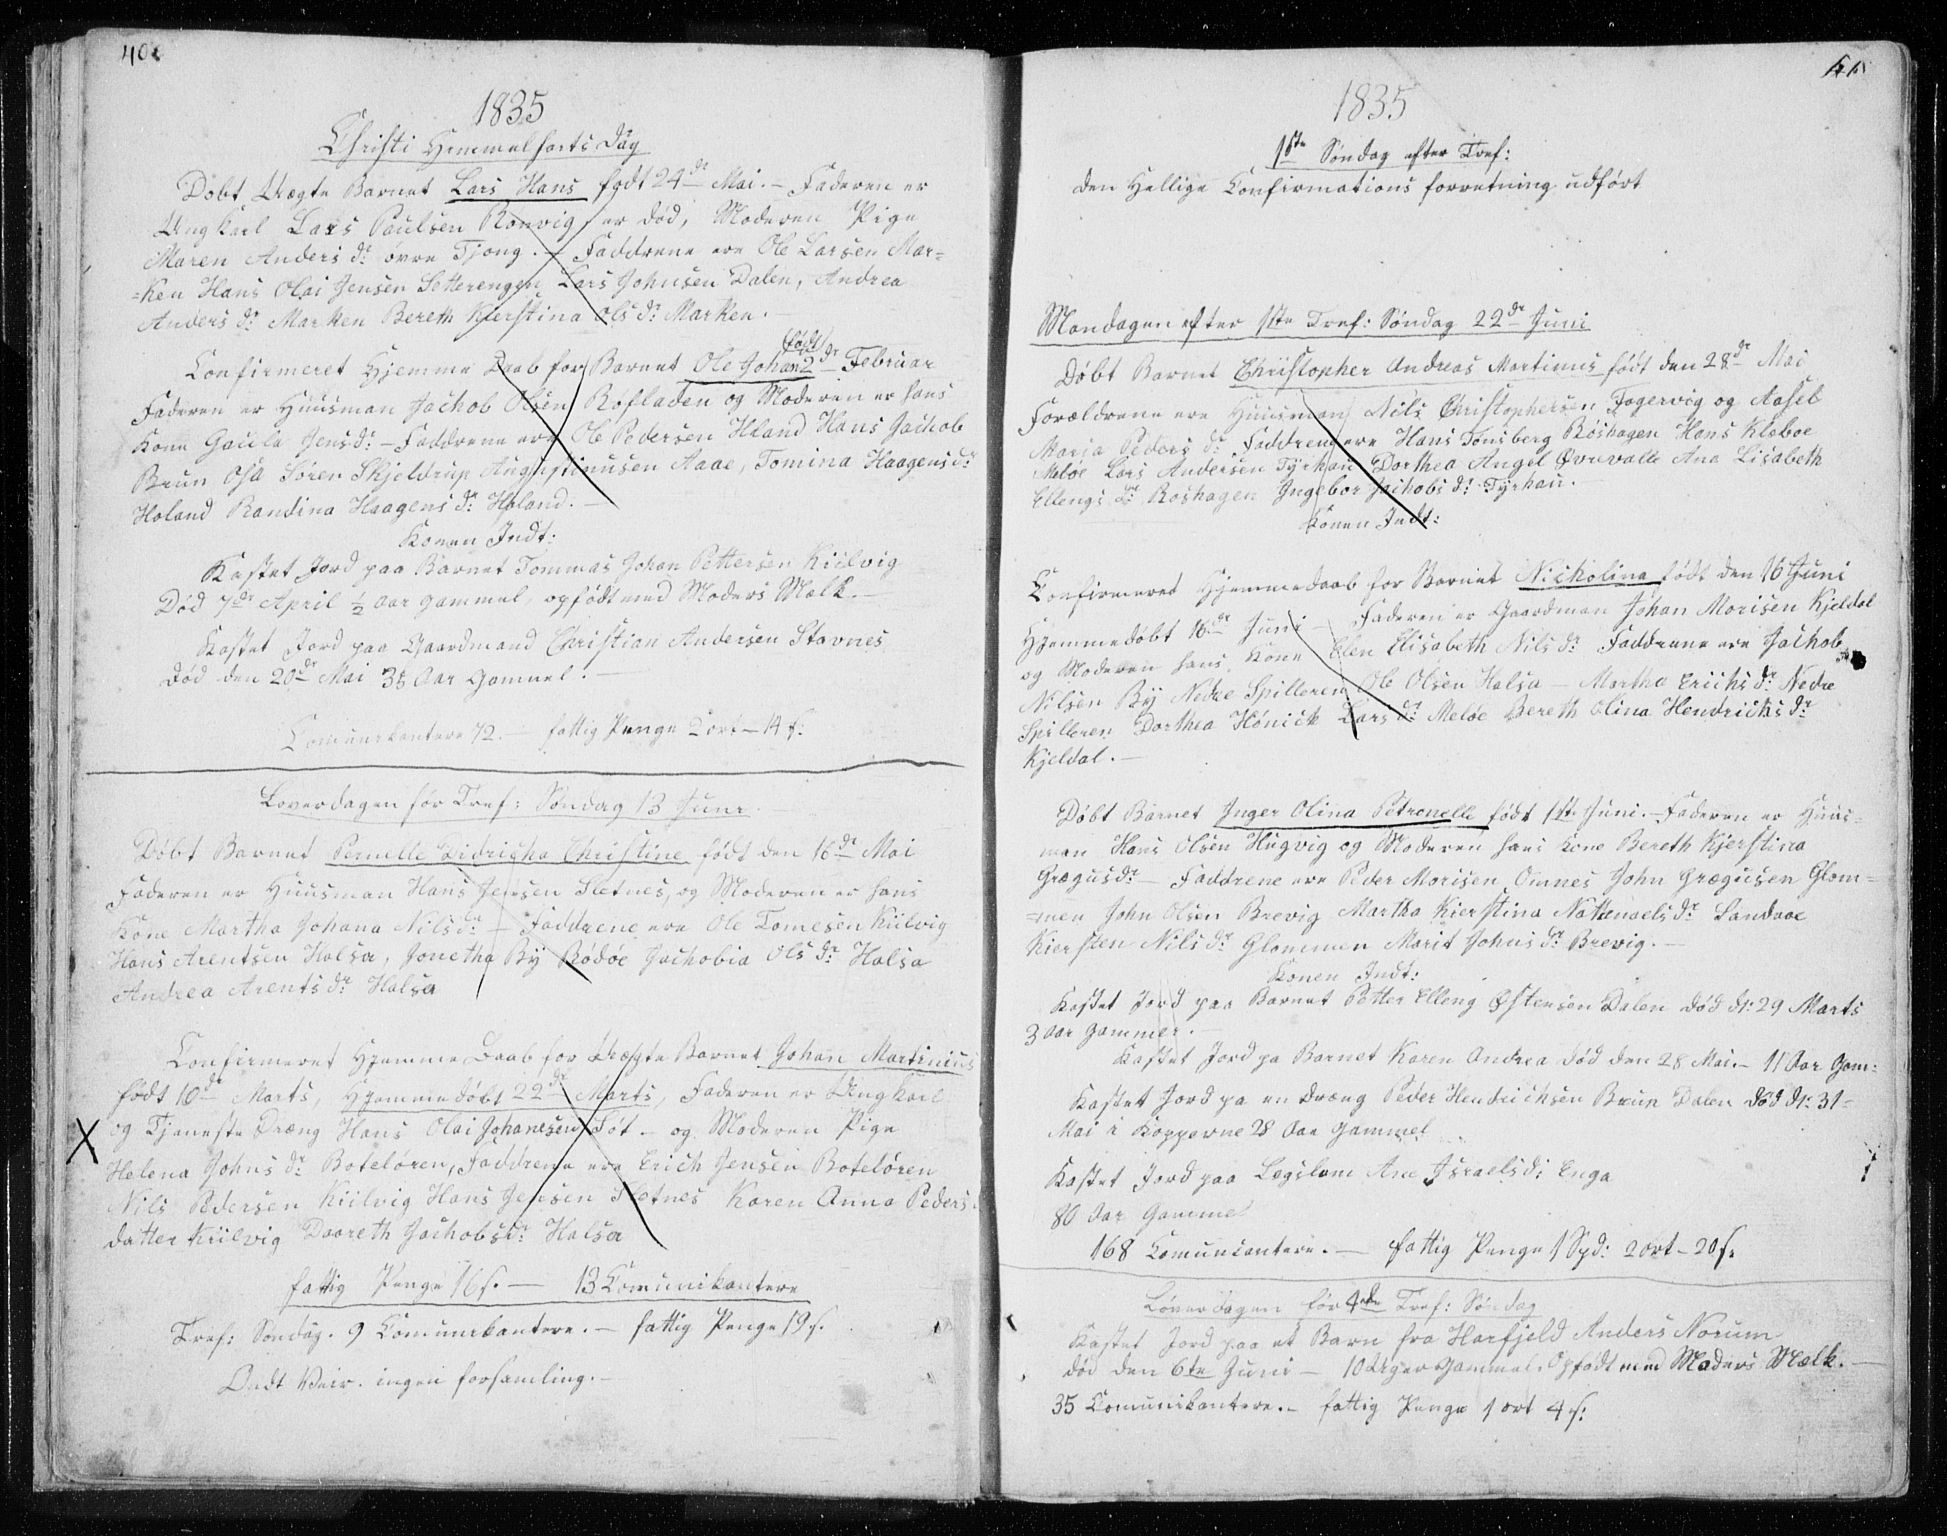 40.
1835
Christi Himmelfarts Dag
Døbt Uægte Barnet Lars Hans født 24de Mai. - Faderen er
Ungkarl Lars Paulsen Rønvig er død, Moderen Pige
Maren Anders dr øvre Tjong. - Faddrene ere Ole Larsen Mar-
=ken Hans Olai Jensen Setterengen Lars Johnsen Dalen, Andrea
Anders dr Marken Bereth Kjerstina Ols dr Marken.
født
Confirmeret Hjemme Daab for Barnet Ole Johan 2de Februar
Faderen er Huusman Jachob Olsen Kofladen og Moderen er hans
Kone Gjertrud Jensdr - Faddrene ere Ole Pedersen Holand Hans Jachob
Brun Osa Søren Skjeldrup Augustinusen Aaae, Tomina Haagensdr
Holand Randina Haagens dr Holand. -
Konen Indt:
Kastet Jord paa Barnet Tommas Johan Pettersen Kiilvig
Død 7de April ½ Aar gammel, opfødt med Moders Mælk. -
Kastet Jord paa Gaardmand Christian Andersen Stavnes
død den 20de Mai 38 Aar Gammel. -
Comunikantere 72. - fattig Penge 2 ort - 14 s:
Løverdagen før Tref: Søndag 13 Juni.
Døbt Barnet Pernelle Didricha Christine født den 16de Mai
Faderen er Huusman Hans Jensen Sletnes, og Moderen er hans
Kone Martha Johana Nilsdr - Faddrene ere Ole Tomesen Kiilvig
Hans Arentsen Halsa, Jonetha By Bødøe Jachobia Ols dr Halsa
Andrea Arents dr Halsa
Confirmeret Hjemme Daab for Uægte Barnet Johan Martinius
født 10de Marts, Hjemmedøbt 22de Marts, Faderen er Ungkarl
og Tjeneste Dræng Hans Olai Johanesen Føt - og Moderen Pige
X
Helena Johns dr Boteløren, Faddrene ere Erich Jensen Boteløren
Nils Pedersen Kiilvig Hans Jensen Sletnes Karen Anna Peders
datter Kiilvig Daareth Jachobsdr Halsa
fattig Penge 16 s. - 13 Comunikantere
Tref: Søndag. 9 Comunikantere. - fattig Penge 19 s.
Ondt Veir. ingen forsamling. -
41
1835
1ste Søndag efter Tref:
den Hellige Confirmations forretning udført
Mandagen efter 1ste Tref: Søndag 22de Juni
Døbt Barnet Christopher Andreas Martinus født den 28de Mai
Forældrene ere Huusman Nils Christophersen Fagervig og Aasel
Maria Peders dr Faddrene ere Hans Tønsberg Roshagen Hans Kleboe
Meløe Lars Andersen Tyrhau Dorthea Angel Øvrevalle Ana Lisabeth
Ellengs dr Roshagen Ingebor Jachobs dr Tyrhau. -
Konen Indt:
Confirmeret Hjemmedaab for Barnet Nicholina født den 16 Juni
Hjemmedøbt 16de Juni - Faderen er Gaardman Johan Morisen Kjeldal
og Moderen hans Kone Elen Elisabeth Nils dr Faddrene ere Jachob
Nilsen By Nedre Spilleren Ole Olsen Halsa - Martha Erichs dr Nedre
Spilleren Dorthea Hønick Lars dr Meløe Bereth Olina Hendrichs dr
Kjeldal. -
Døbt Barnet Inger Olina Petronelle født 1ste Juni. - Faderen er Huus-
man Hans Olsen Hugvig og Moderen hans Kone Bereth Kjerstina
Grægusdr - Faddrene ere Peder Morisen Omnes John Grægusen Glom-
=men John Olsen Brevig Martha Kierstina Nathenaels dr Sandaae
Kiersten Nils dr Glommen Marit Johns dr Brevig. -
Konen Indt:
Kastet Jord paa Barnet Petter Elleng Østensen Dalen død d: 29 Marts
3 Aar Gammel. -
Kastet Jord pa Barnet Karen Andrea død den 28 Mai. - 11 Aar Gam-
Kastet Jord pa en Dræng Peder Hendrichsen Brun Dalen død d: 31-
Mai i Kopperne 28 Aar Gammel
Kastet Jord paa Legslem Ane Israelsd: Enga
80 Aar Gammel
168 Comunicantere. - fattig Penge 1 Spd: 2 ort - 20 s.
Løverdagen før 4de Tref: Søndag
Kastet Jord paa et Barn fra Harfjeld Anders Norum
død den 6te Juni - 10 Uger Gammel. Opfødt med Moders Mælk. -
35 Comunikantere. - fattig Penge 1 ort 4 s: